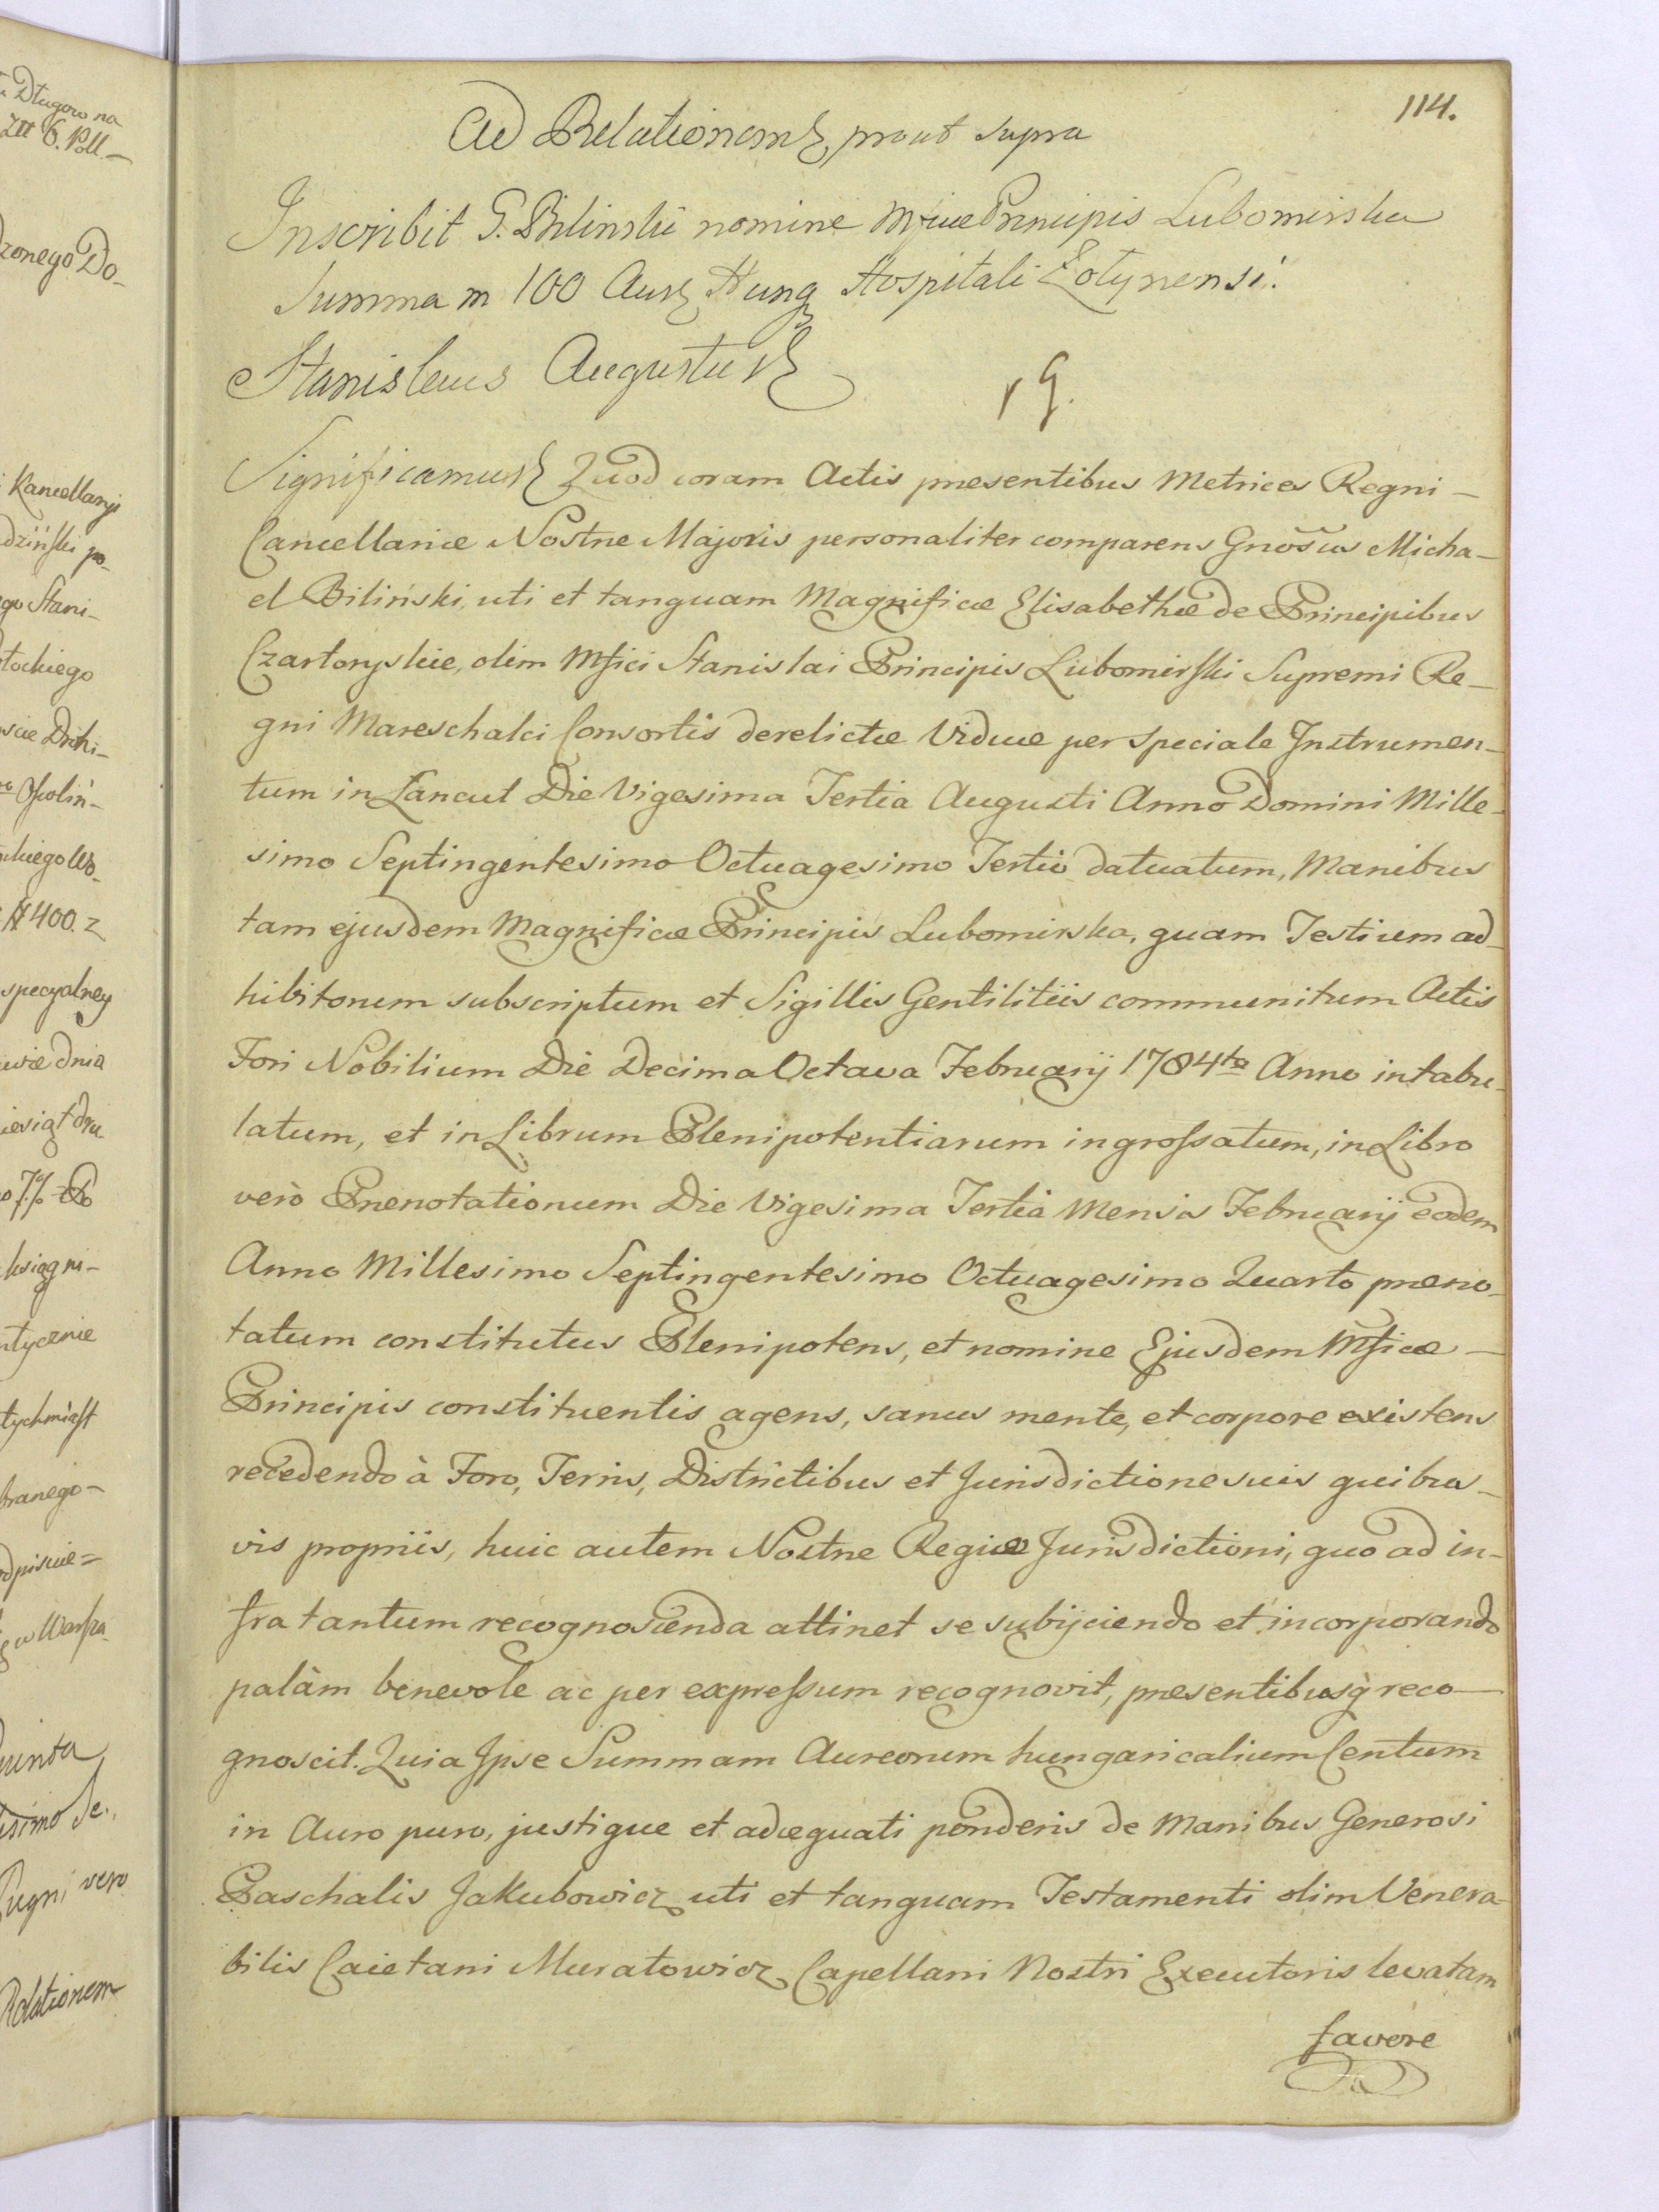 114.
Ad Relationem, prout supra
Inscribit G. Bilinski nomine Mficae Principis Lubomirska
Summam 100 Aur Hung Hospitali Zołynensi.
Stanislaus Augustus
19.
Significamus Quod coram Actis praesentibus Metrices Regni –
Cancellariae Nostrae Majoris personaliter comparens Gnosus Micha–
el Biliński, uti et tanquam Magnificae Elisabethae de Principibus
Czartoryskie, olim Mfici Stanislai Principis Lubomirski Supremi Re–
gni Mareschalci Consortis derelictae Viduae per speciale Instrumen–
tum in Łancut Die Vigesima Tertia Augusti Anno Domini Mille–
simo Septingentesimo Octuagesimo Tertio datuatum, Manibus
tam ejusdem Magnificae Principis Lubomirska, quam Testium ad–
hibitorum subscriptum et Sigillis Gentilitiis communitum Actis
Fori Nobilium Die Decima Octava Februarij 1784to Anno intabu–
latum, et in Librum Plenipotentiarum ingrossatum, in Libro
verò Praenotationum Die Vigesima Tertia Mensis Februarij eodem
Anno Millesimo Septingentesimo Octuagesimo Quarto praeno–
tatum constitutus Plenipotens, et nomine Ejusdem Mficae –
Principis constituentis agens, sanus mente, et corpore existens
recedendo à Foro, Terris, Districtibus et Jurisdictione suis quibus–
vis propriis, huic autem Nostrae Regiae Jurisdictioni, quo ad in–
fra tantum recognoscenda attinet se subijciendo et incorporando
palàm benevole ac per expressum recognovit, praesentibusq̀ reco–
gnoscit. Quia Ipse Summam Aureorum hungaricalium Centum
in Auro puro, justique et adaequati ponderis de Manibus Generosi
Paschalis Jakubowicz uti et tanquam Testamenti olim Venera–
bilis Caietani Muratowicz Capellani Nostri Executoris levatam
favore